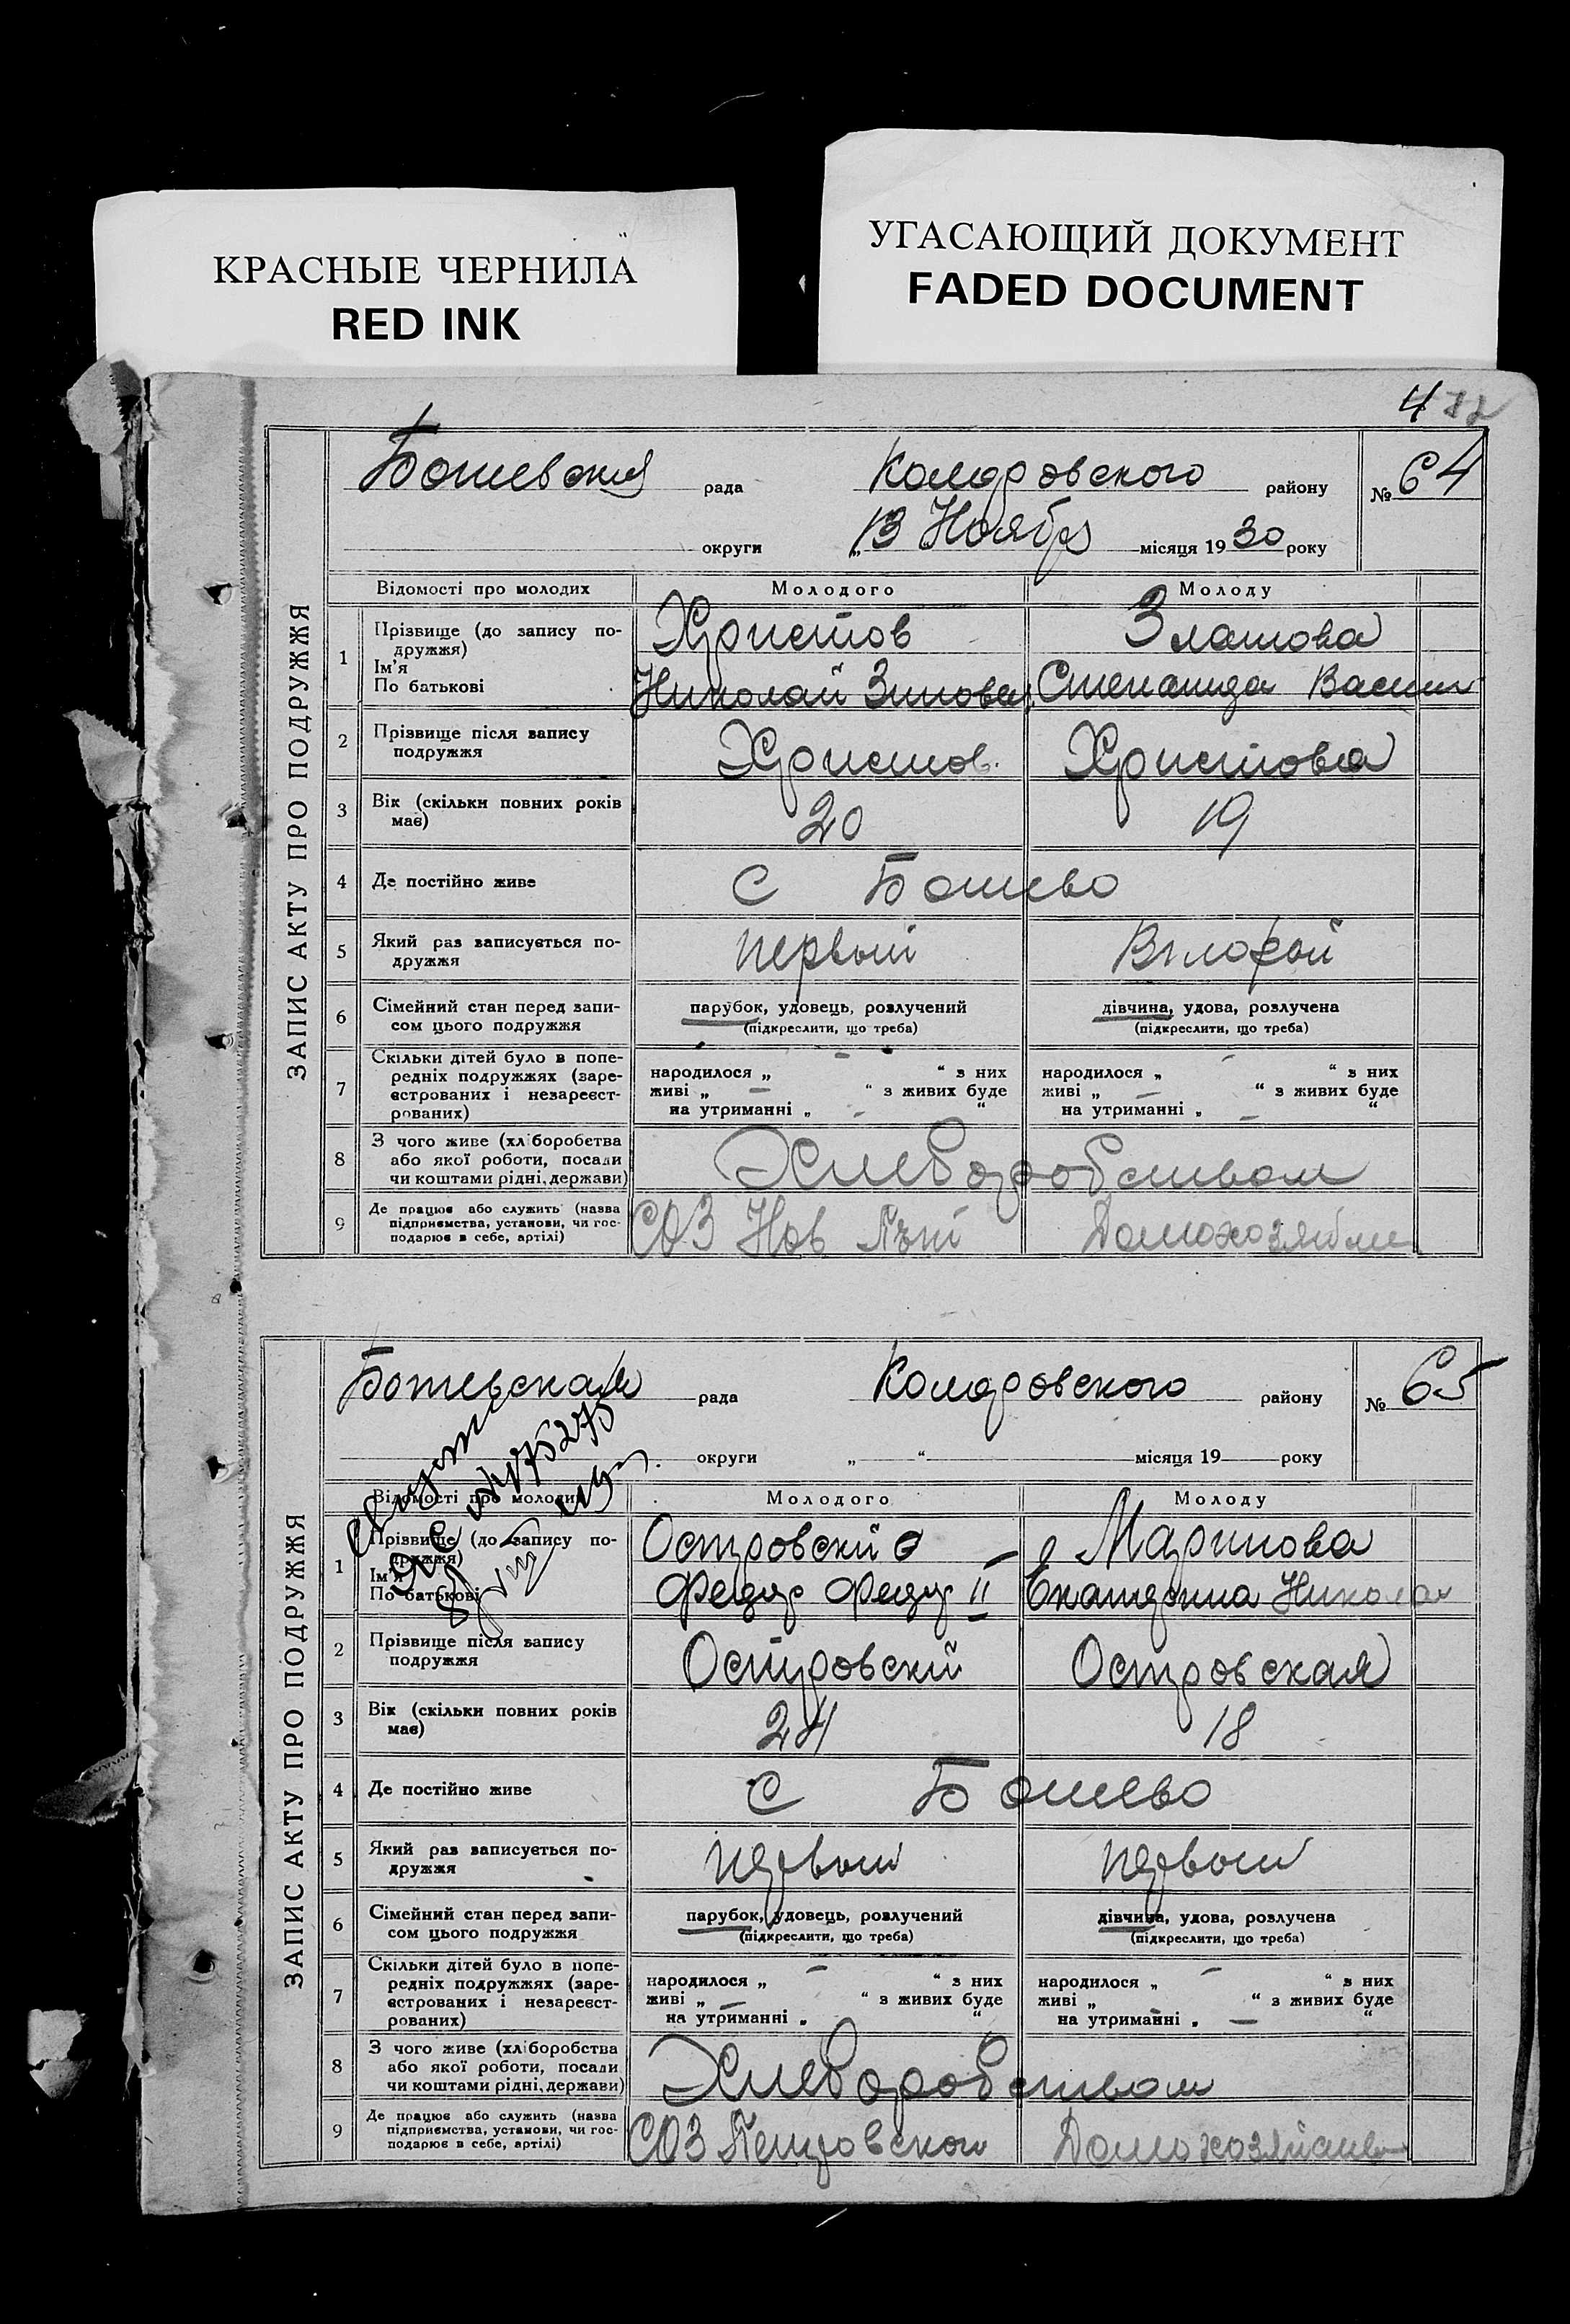 КРАСНЫЕ ЧЕРНИЛА
RED INK
УГАСАЮЩИЙ ДОКУМЕНТ
FADED DOCUMENT
4
ЗАПИС АКТУ ПРО ПОДРУЖЖЯ
Ботевская рада Коларовского району № 64
округи „13 Ноября місяця 1930 року
Відомості про молодих Молодого Молоду
1 Прізвище (до запису по- Христов Златова
дружжя)
Ім'я
По батькові Николай Зиновей Степанида Васил
2 Прізвище після запису
подружжя Христов. Христова
3 Вік (скільки повних років
має) 20 19
4 Де постійно живе С Ботево
5 Який раз записується по-
дружжя первый Второй
6 Сімейний стан перед запи- парубок, удовець, розлучений дівчина, удова, розлучена
сом цього подружжя (підкреслити, що треба) (підкреслити, що треба)
7 Скільки дітей було в попе-
редніх подружжях (заре- народилося „ — “ з них народилося „ — “ з них
єстрованих і незареєст- живі „ — “ з живих буде живі „ — “ з живих буде
рованих) на утриманні „ — “ на утриманні „ — “
8 З чого живе (хліборобства
або якої роботи, посади Хлеборобством
чи коштами рідні, держави)
9 Де працює або служить (назва
підприємства, установи, чи гос- СОЗ Нов Път Домохозяйка
подарює в себе, артілі)
ЗАПИС АКТУ ПРО ПОДРУЖЖЯ
Ботевская рада Коларовского району № 65
округи „ “ місяця 19 року
Відомості про молодих Молодого Молоду
1 Прізвище (до запису по- Островский Маринова
дружжя)
Ім'я
По батькові Федор Федор II Екатерина Никола
2 Прізвище після запису
подружжя Островскій Островская
3 Вік (скільки повних років
має) 24 18
4 Де постійно живе С Ботево
5 Який раз записується по-
дружжя первый первый
6 Сімейний стан перед запи- парубок, удовець, розлучений дівчина, удова, розлучена
сом цього подружжя (підкреслити, що треба) (підкреслити, що треба)
7 Скільки дітей було в попе-
редніх подружжях (заре- народилося „ — “ з них народилося „ — “ з них
єстрованих і незареєст- живі „ — “ з живих буде живі „ — “ з живих буде
рованих) на утриманні „ “ на утриманні „ — “
8 З чого живе (хліборобства
або якої роботи, посади Хлеборобством
чи коштами рідні, держави)
9 Де працює або служить (назва
підприємства, установи, чи гос- СОЗ Петровского
подарює в себе, артілі)